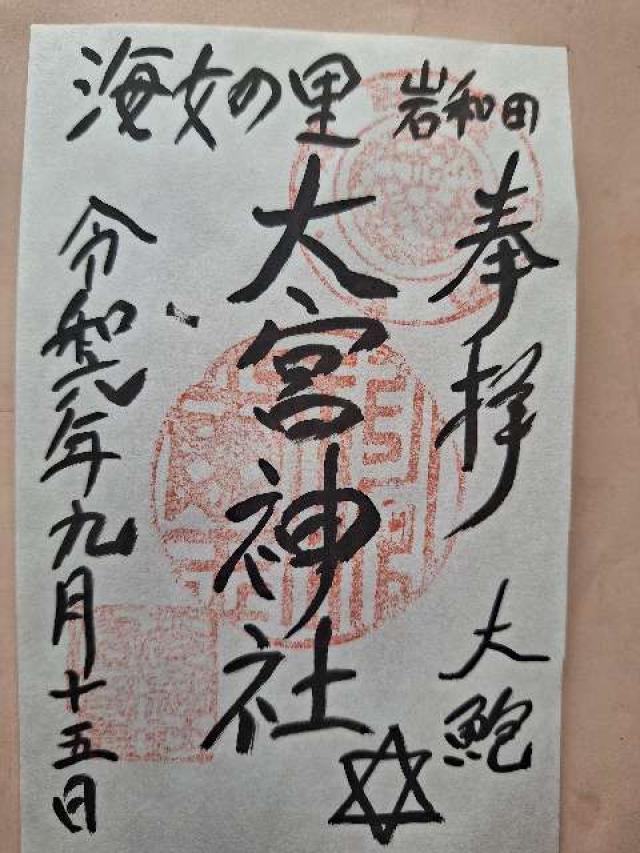 海女の里 岩和田
奉拝
大鮑
大宮神社
令和六年九月十五日